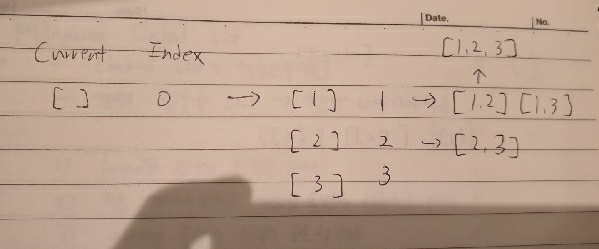 Date. No.
[1,2,3]
Current Index ↑
[ ] 0 → [1] 1 → [1,2] [1,3]
[2] 2 → [2,3]
[3] 3